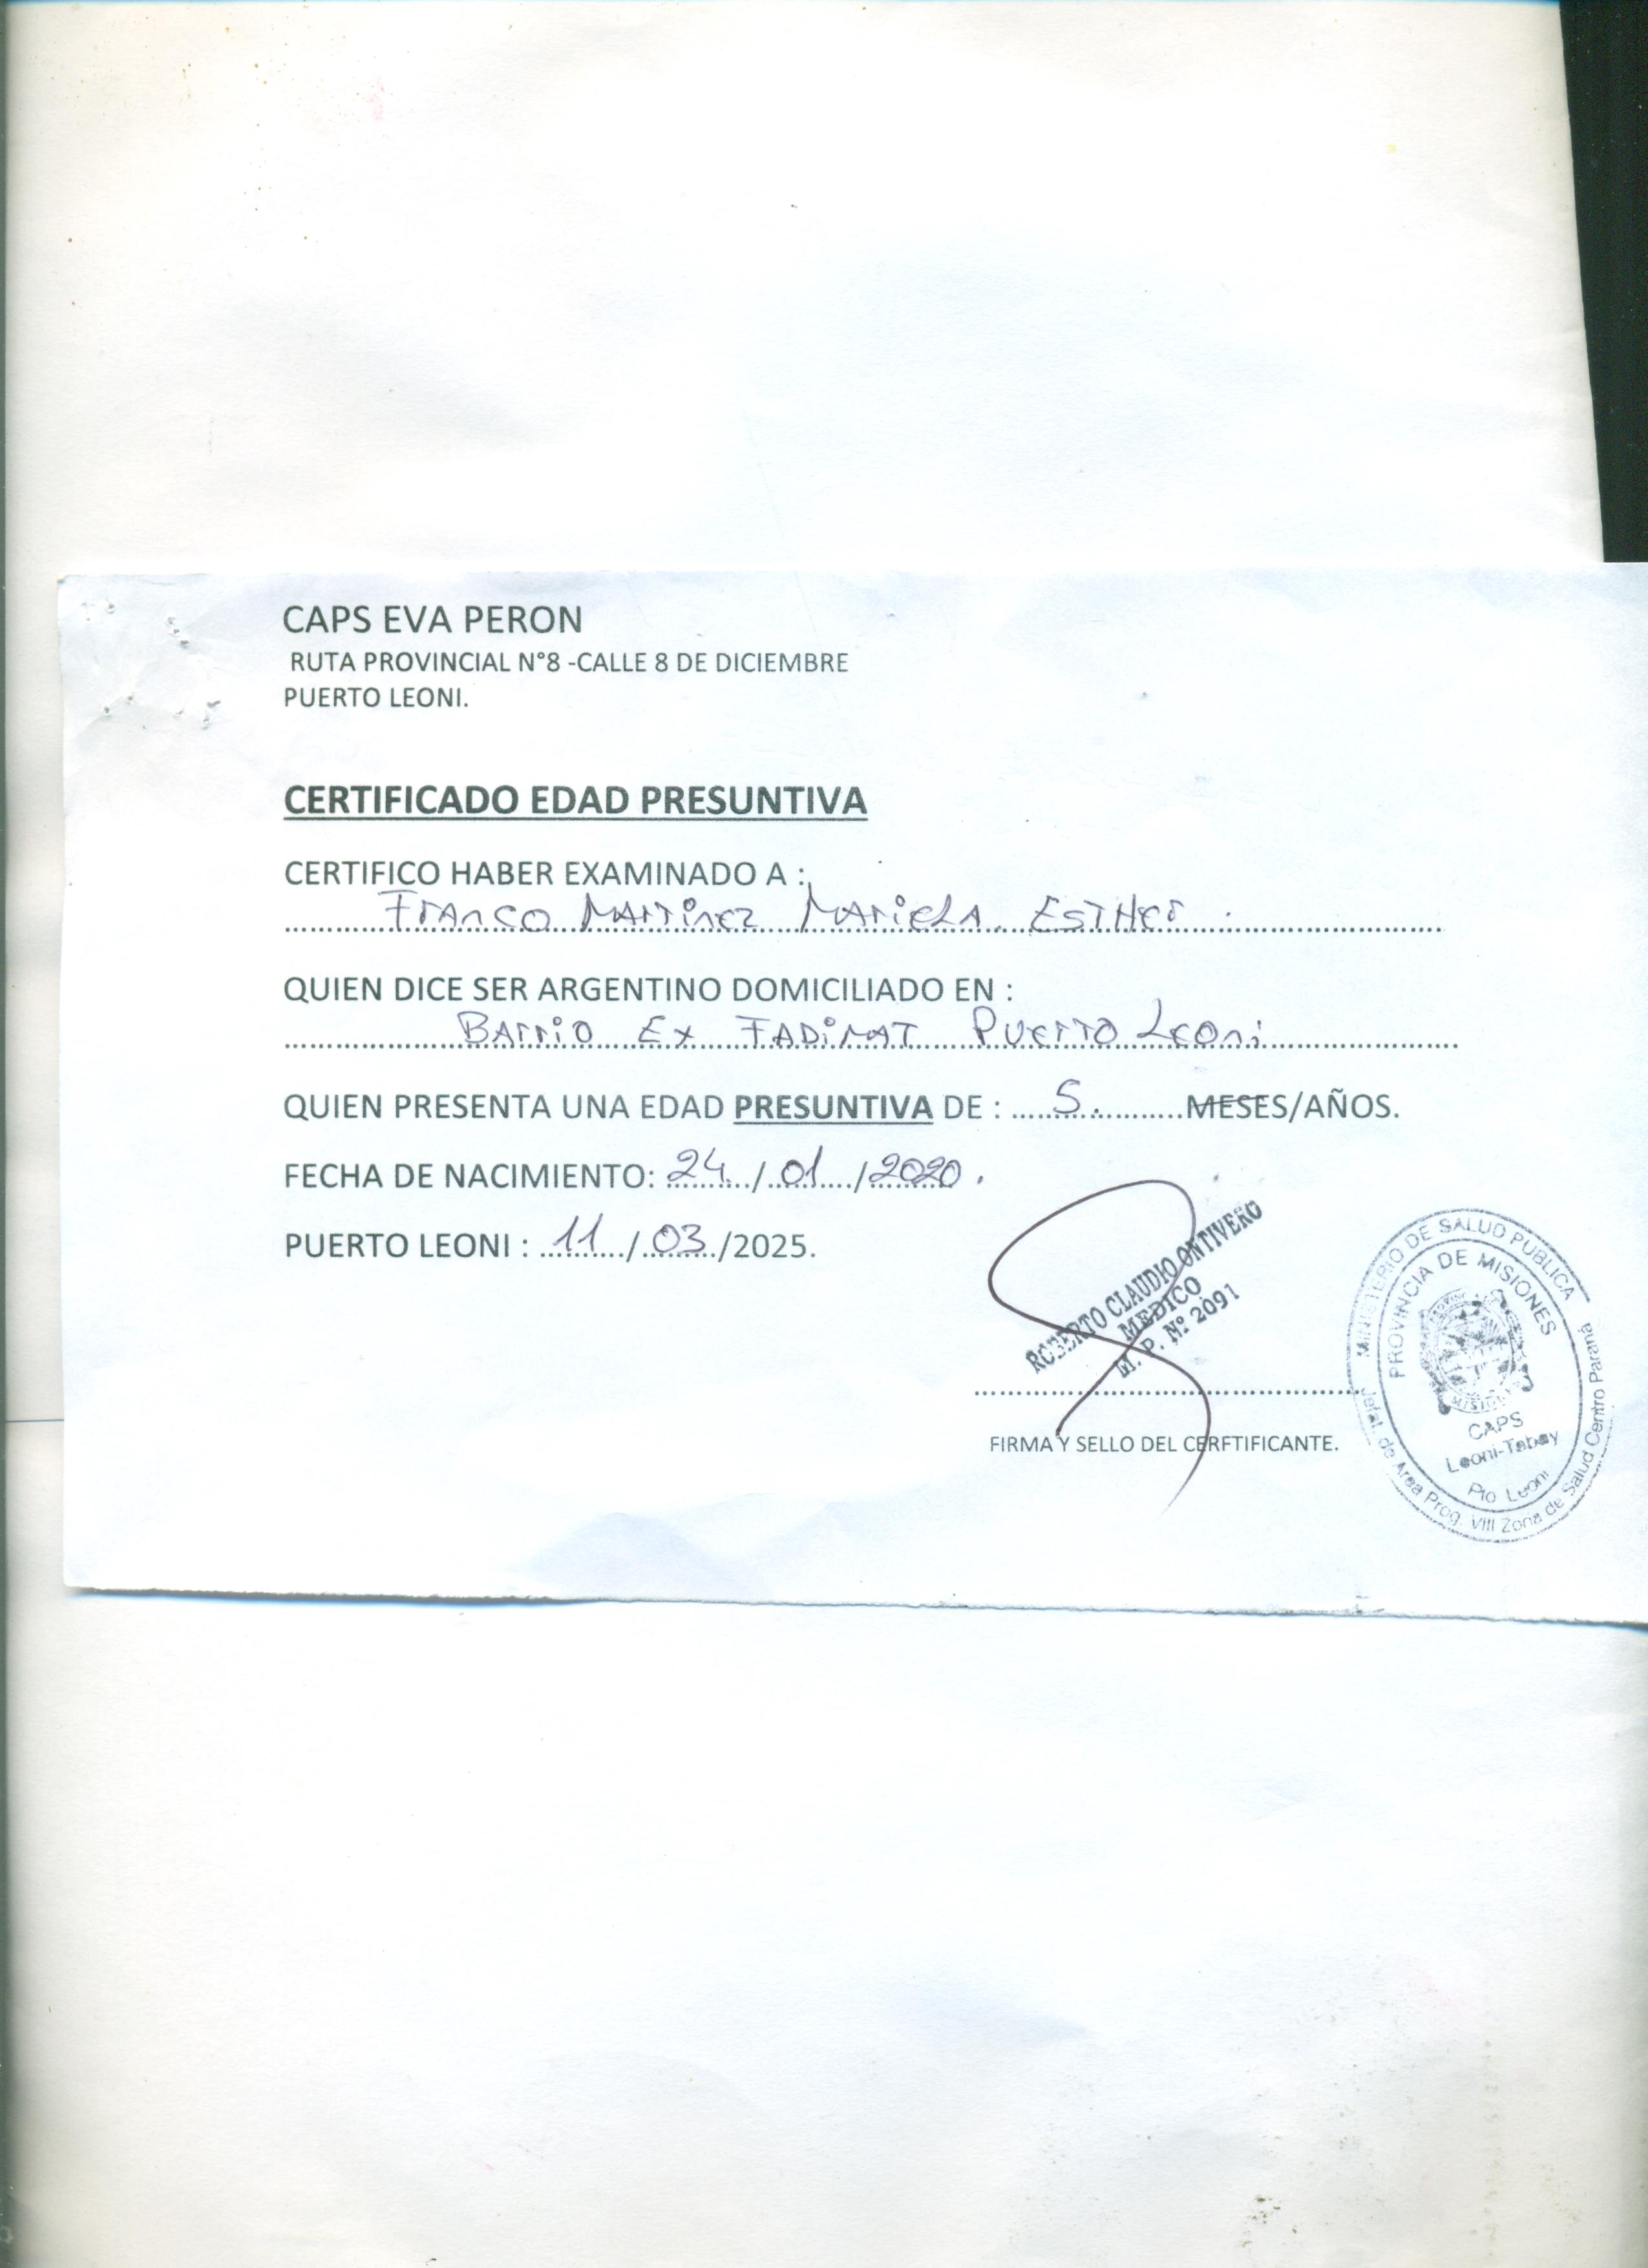 CAPS EVA PERON
RUTA PROVINCIAL N°8 -CALLE 8 DE DICIEMBRE
PUERTO LEONI.
CERTIFICADO EDAD PRESUNTIVA
CERTIFICO HABER EXAMINADO A :
Franco Martinez Mariela Esther
QUIEN DICE SER ARGENTINO DOMICILIADO EN :
Barrio Ex Fadimat Puerto Leoni
QUIEN PRESENTA UNA EDAD PRESUNTIVA DE : 5 MESES/AÑOS.
FECHA DE NACIMIENTO: 24 / 01 / 2020.
PUERTO LEONI : 11 / 03 /2025.
ROBERTO CLAUDIO ONTIVERO
MEDICO
M. P. Nº 2091
FIRMA Y SELLO DEL CERFTIFICANTE.
MINISTERIO DE SALUD PUBLICA
PROVINCIA DE MISIONES
CAPS
Leoni-Tabay
Pto Leoni
Jefat. de Area Prog. VIII Zona de Salud Centro Paraná